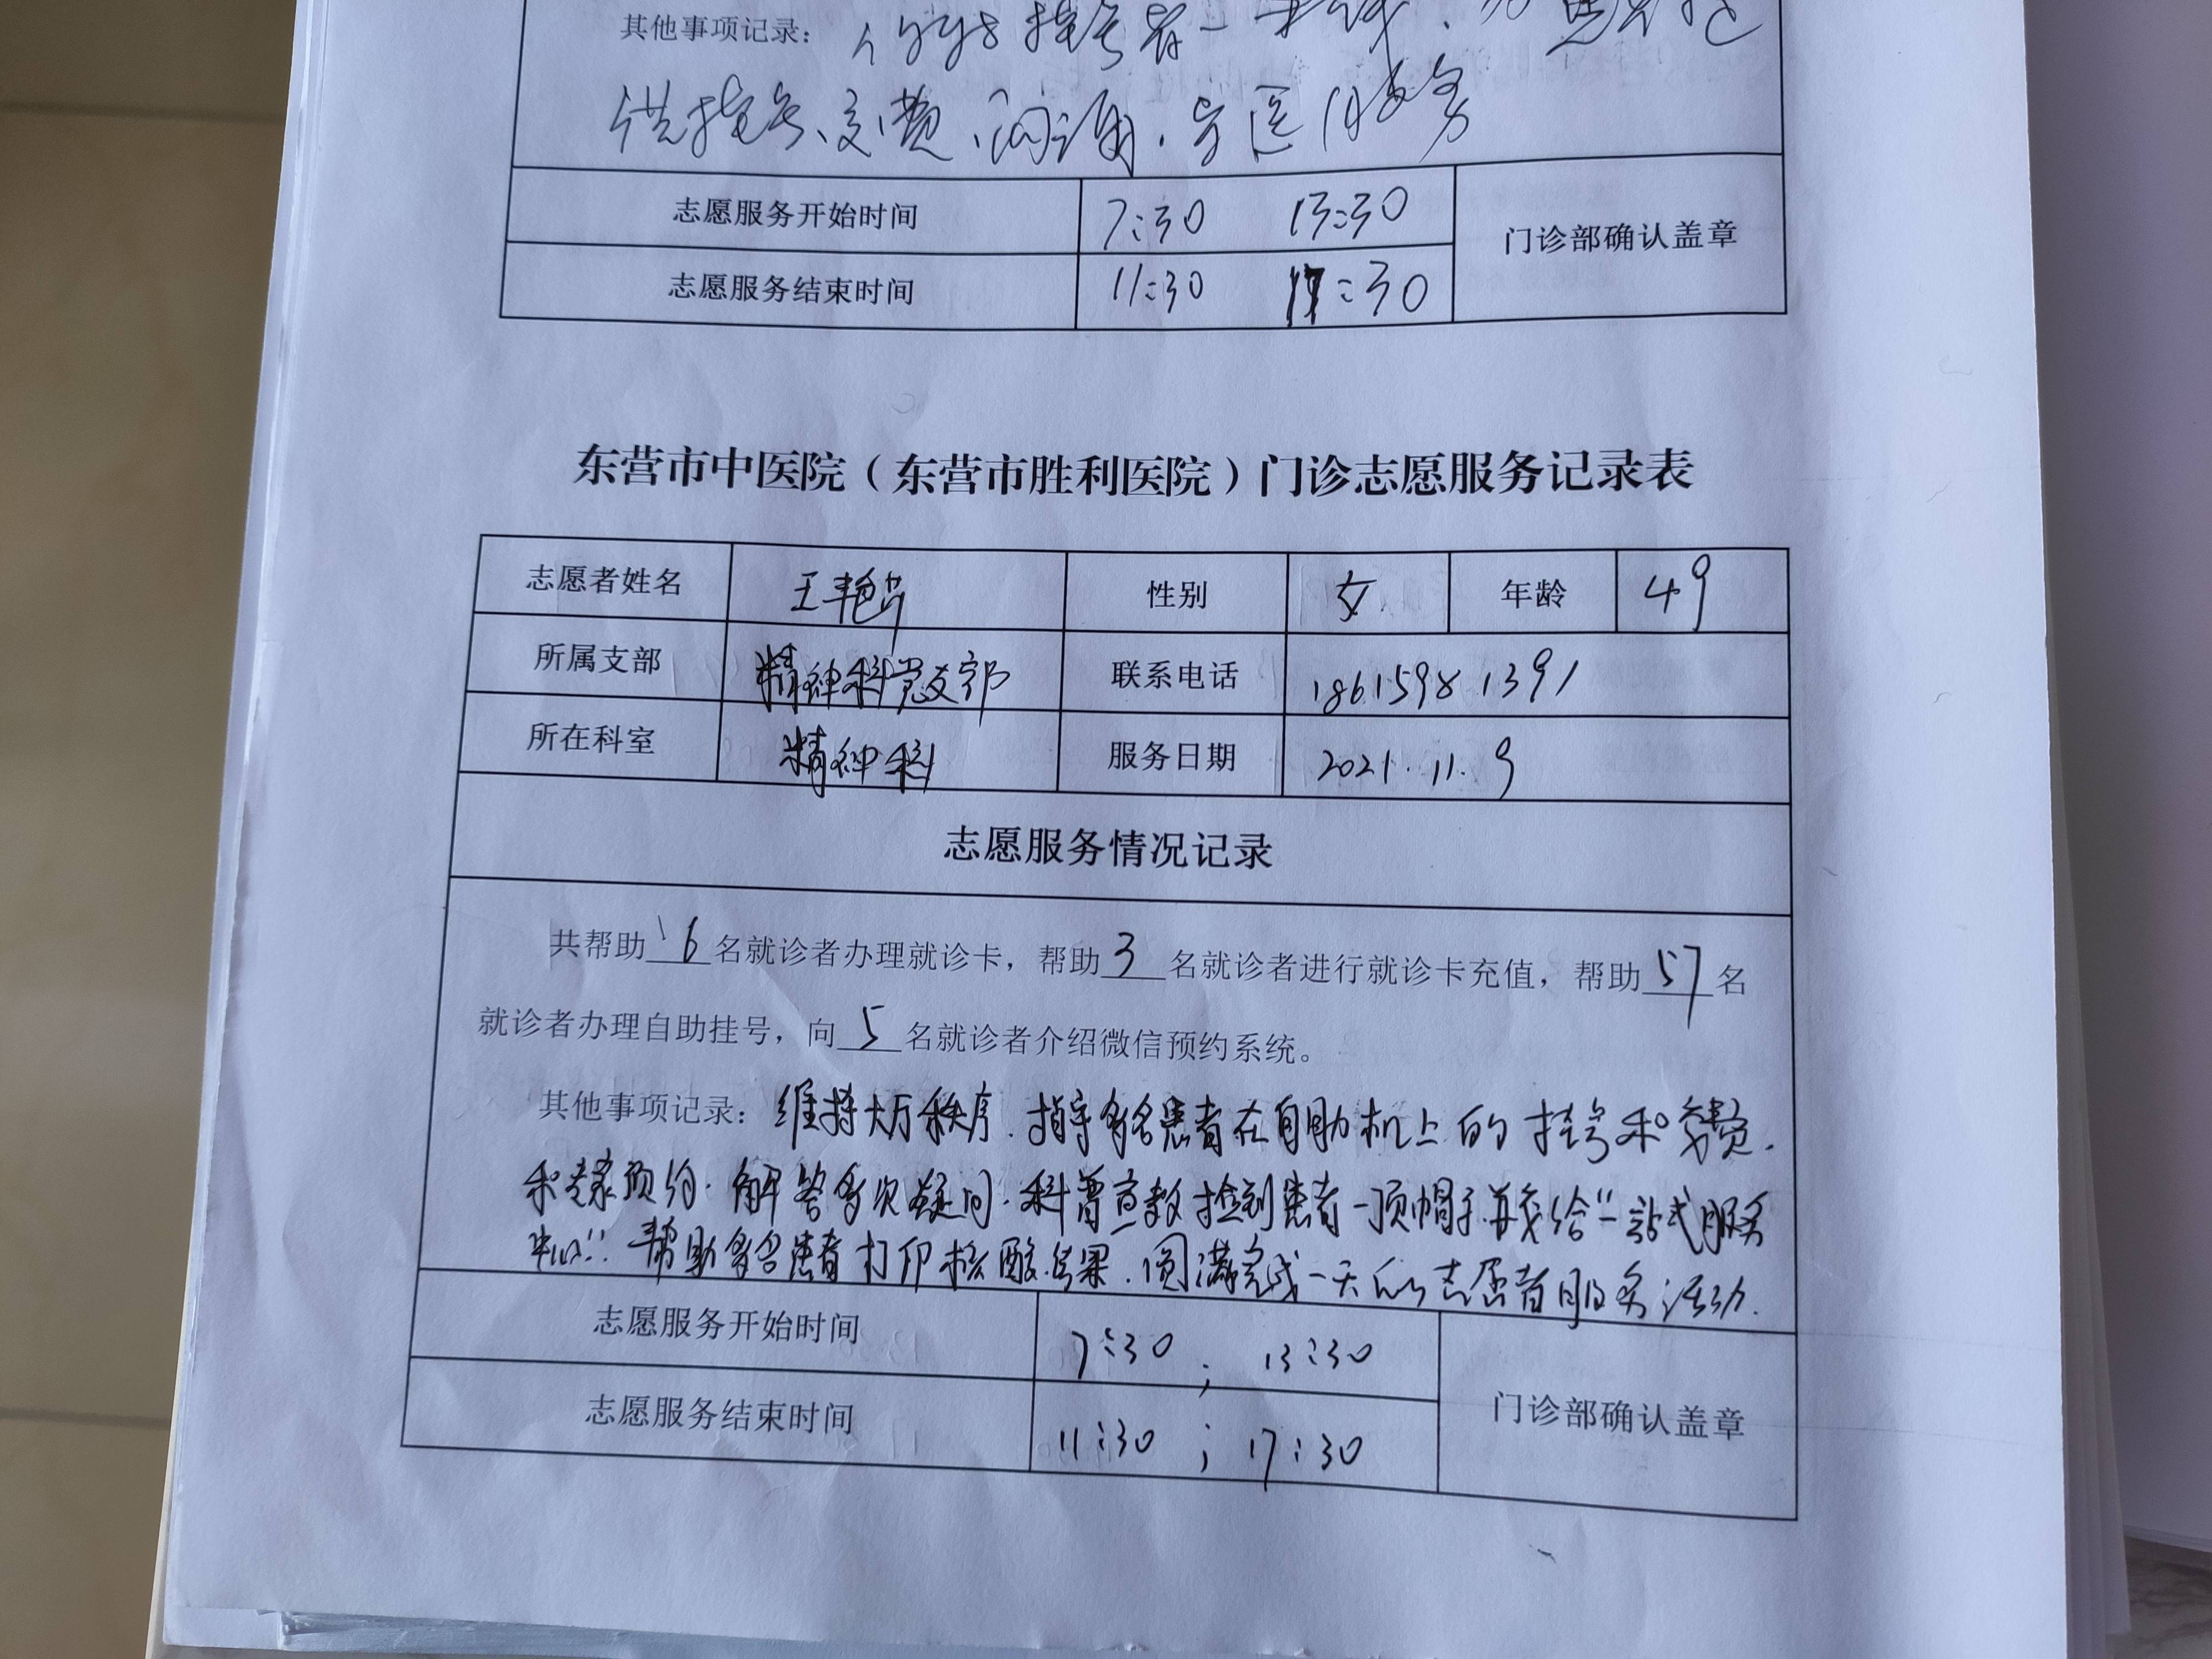 其他事项记录：
供挂号、交费、阅调、导医服务
志愿服务开始时间 7:30 13:30 门诊部确认盖章
志愿服务结束时间 11:30 17:30
东营市中医院（东营市胜利医院）门诊志愿服务记录表
志愿者姓名 王艳 性别 女 年龄 49
所属支部 精神科党支部 联系电话 18615981391
所在科室 精神科 服务日期 2021.11.9
志愿服务情况记录
共帮助 16 名就诊者办理就诊卡，帮助 3 名就诊者进行就诊卡充值，帮助 57 名
就诊者办理自助挂号，向 5 名就诊者介绍微信预约系统。
其他事项记录：维持大厅秩序.指导多名患者在自助机上的挂号和交费.
和专家预约.解答多次疑问.科普宣教捡到患者一顶帽子.再交给“一站式服务
中心”.帮助多名患者打印核酸结果.圆满完成一天的志愿者服务活动.
志愿服务开始时间 7:30 ; 13:30 门诊部确认盖章
志愿服务结束时间 11:30 ; 17:30